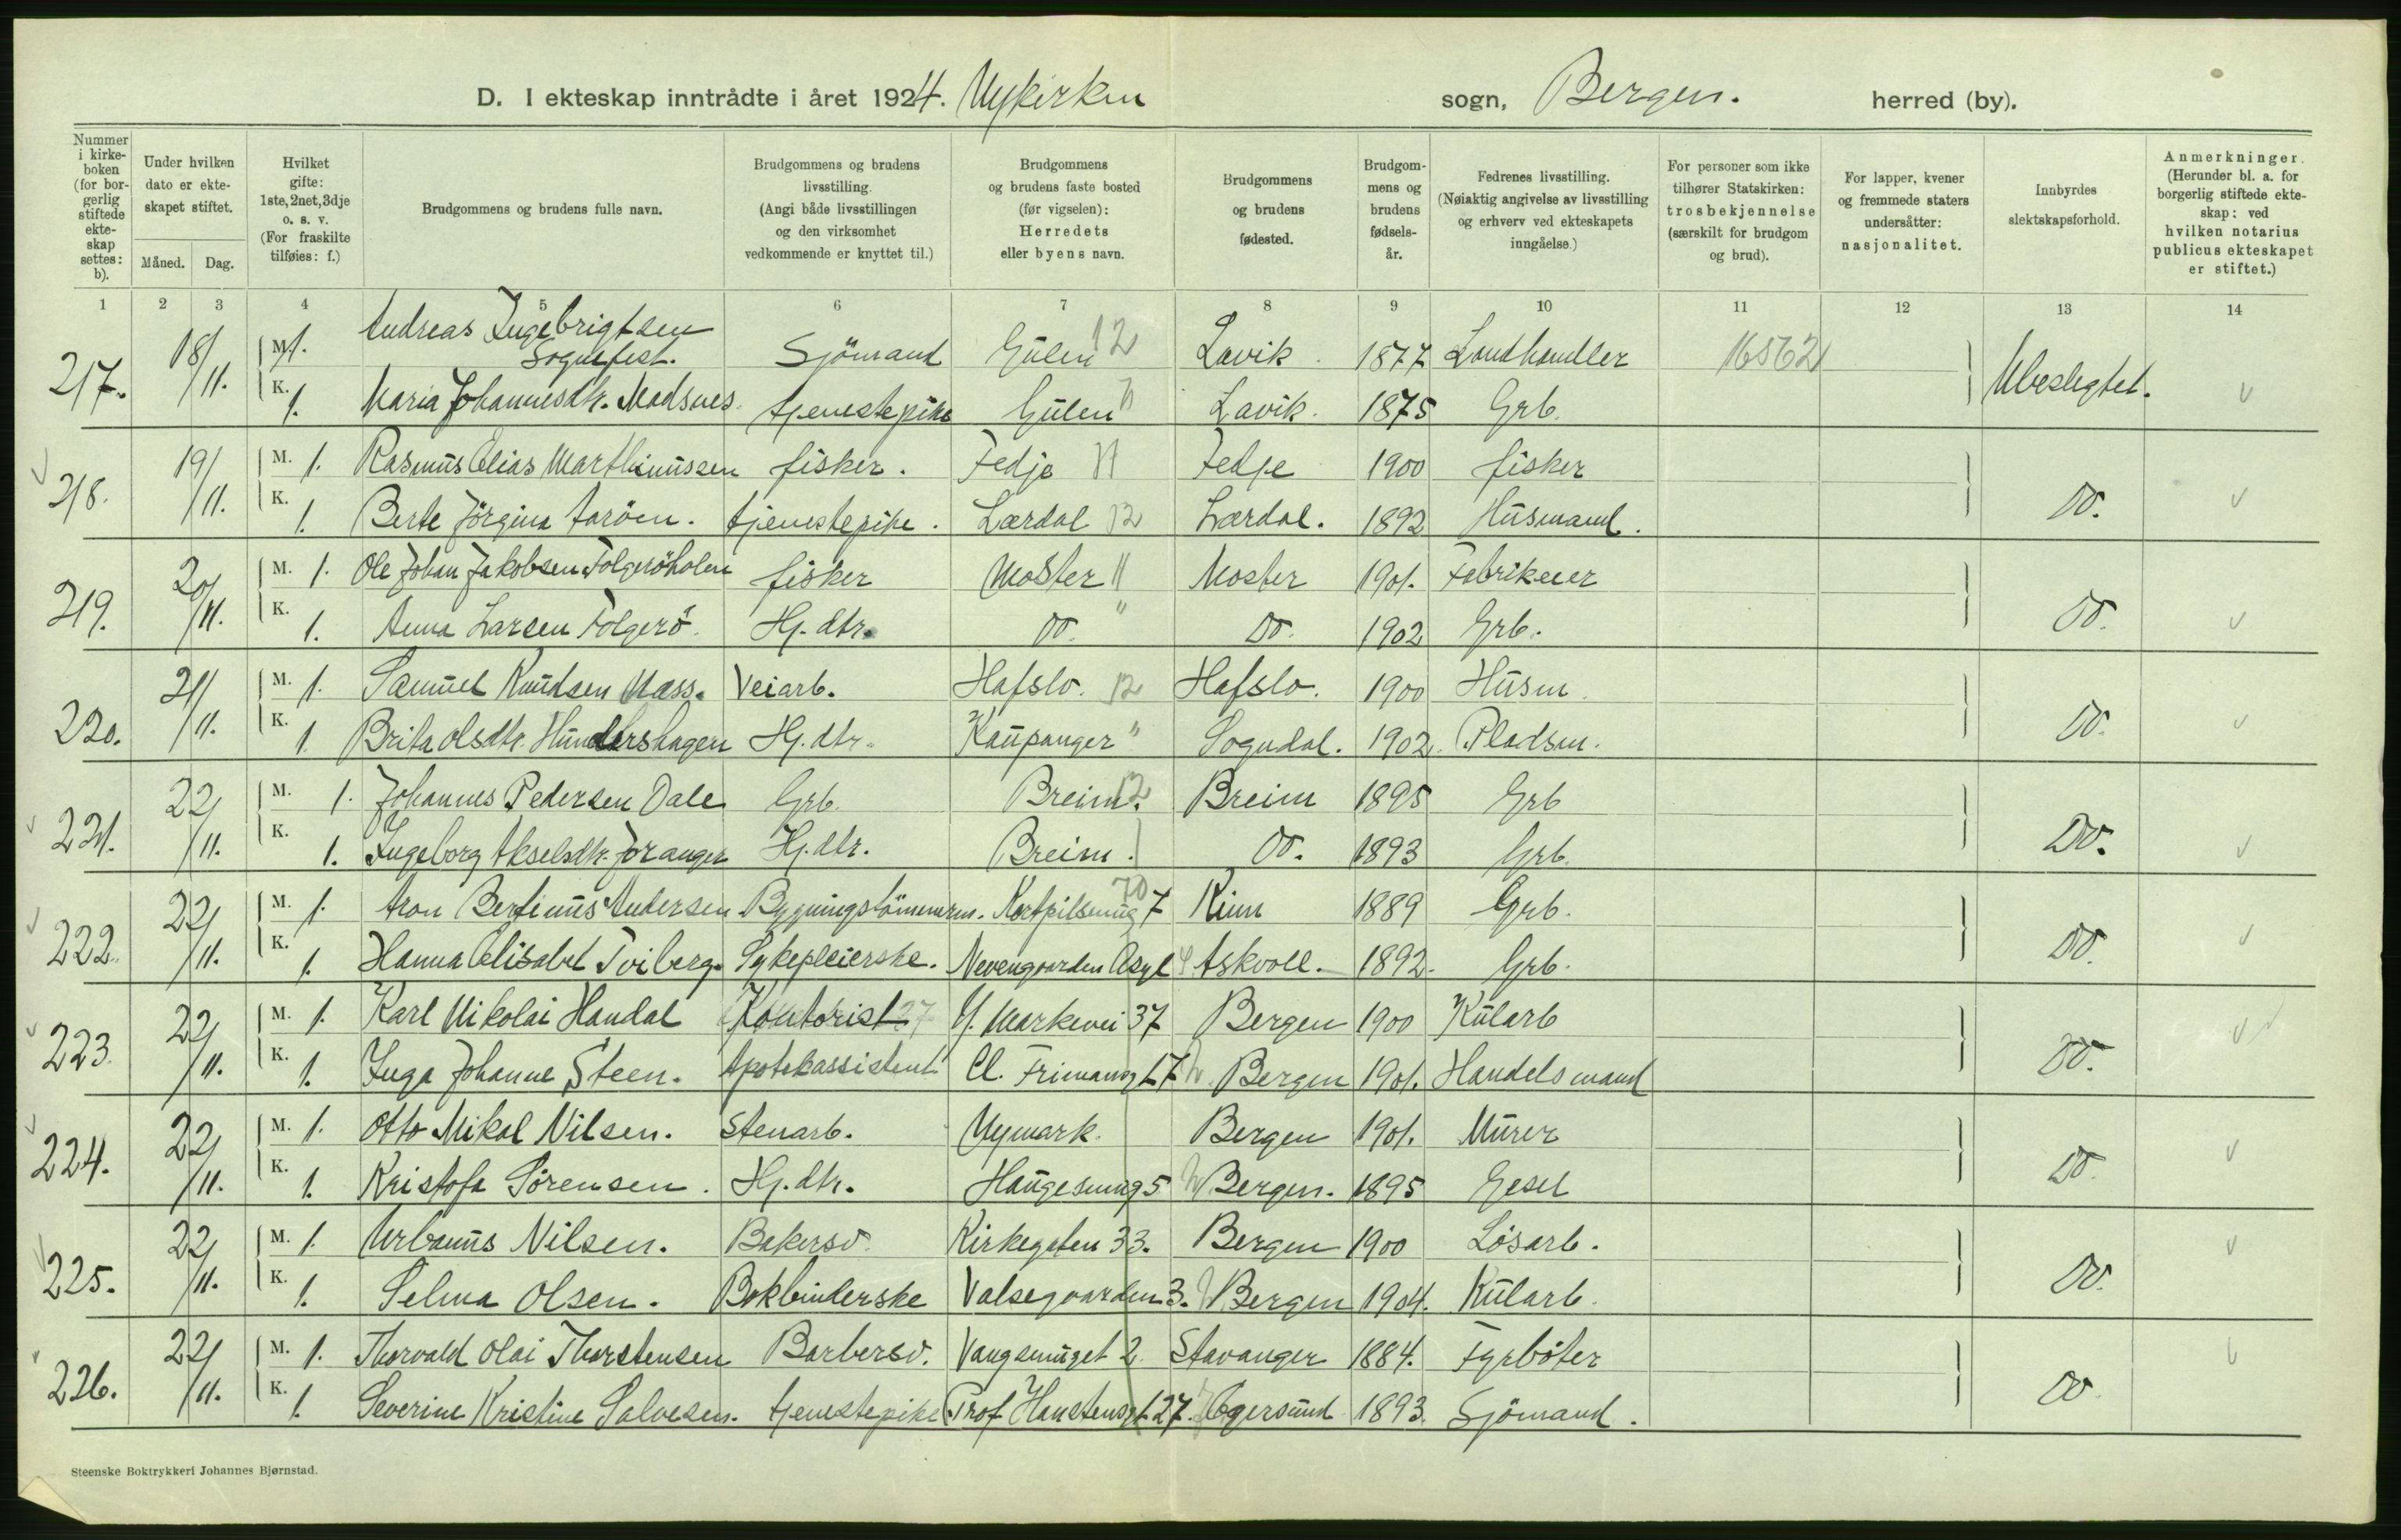 D. I ekteskap inntrådte i året 1924. Nykirken sogn, Bergen. herred (by).
Nummer i kirkeboken (for borgerlig stiftede ekteskap settes: b).
Under hvilken dato er ekteskapet stiftet.
Måned. Dag.
Hvilket gifte: 1ste, 2net, 3dje o. s. v. (For fraskilte tilføies: f.)
Brudgommens og brudens fulle navn.
Brudgommens og brudens livsstilling. (Angi både livsstillingen og den virksomhet vedkommende er knyttet til.)
Brudgommens og brudens faste bosted (før vigselen): Herredets eller byens navn.
Brudgommens og brudens fødested.
Brudgommens og brudens fødselsår.
Fedrenes livsstilling. (Nøiaktig angivelse av livsstilling og erhverv ved ekteskapets inngåelse.)
For personer som ikke tilhører Statskirken: trosbekjennelse (særskilt for brudgom og brud).
For lapper, kvener og fremmede staters undersåtter: nasjonalitet.
Innbyrdes slektskapsforhold.
Anmerkninger. (Herunder bl. a. for borgerlig stiftede ekteskap: ved hvilken notarius publicus ekteskapet er stiftet.)
1 2 3 4 5 6 7 8 9 10 11 12 13 14
217. 18/11. M. 1. Andreas Ingebrigtsen Sognefest. Sjömand Gulen 12 Lavik 1877 Landhandler 16562 Ubeslegtet.
K. 1. Maria Johannesdtr. Madsnes. tjenestepike Gulen " Lavik. 1875 Grb.
218. 19/11. M. 1. Rasmus Elias Marthinussen fisker. Fedje 11 Fedje 1900 fisker Do.
K. 1. Berte Jörgina Aaröen. tjenestepike. Lærdal 12 Lærdal. 1892 Husmand.
219. 20/11. M. 1. Ole Johan Jakobsen Folgeröholen fisker Moster 11 Moster 1901. Fabrikeier Do.
K. 1. Anna Larsen Folgerö. Hj. dtr. Do. " Do. 1902 Grb.
220. 21/11. M. 1. Samuel Knudsen Næss. Veiarb. Hafslo. 12 Hafslo. 1900 Husm. Do.
K. 1. Brita Olsdtr. Hundershagen Hj. dtr. Kaupanger " Sogndal. 1902. Pladsm.
221. 22/11. M. 1. Johannes Pedersen Dale Grb. Breim. 12 Breim 1895 Grb Do.
K. 1. Ingeborg Akselsdtr. Joranger Hj. dtr. Breim. Do. 1893 Grb.
222. 22/11. M. 1. Aron Bertinus Andersen Bygningstömmerm. Kortpilsmug 7 Kinn 1889 Grb. Do.
K. 1. Hanna Elisabet Tviberg. Sykepleierske. Nevengaarden Asyl Askvoll. 1892. Grb.
223. 22/11. M. 1. Karl Nikolai Handal Kontorist 37 N. Markevei 37 Bergen 1900 Kularb Do.
K. 1. Inga Johanne Steen. Apotekassistent Cl. Frimansgt 17 Bergen 1901. Handelsmand
224. 22/11. M. 1. Otto Mikal Nilsen. Stenarb. Nymark. Bergen 1901. Murer Do.
K. 1. Kristofa Sörensen. Hj. dtr. Haugesung 5 Bergen. 1895 Gesel
225. 22/11. M. 1. Urbanus Nilsen. Bakersv. Kirkegaten 33. Bergen 1900 Lösarb. Do.
K. 1. Selma Olsen. Bokbinderske Valsegaarden 3. Bergen 1904. Kularb.
226. 22/11. M. 1. Thorvald Olai Thorstensen Barbersv. Vangsmuget 2. Stavanger 1884. Fyrböter Do
K. 1. Severine Kristine Salvesen. tjenestepike Prof Hanstensgt 27. Egersund 1893. Sjömand.
Steenske Boktrykkeri Johannes Bjørnstad.